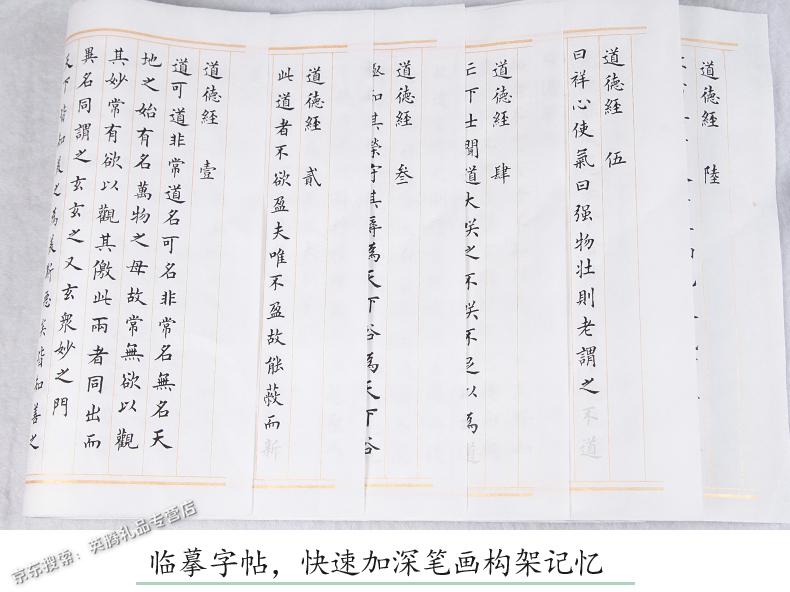 道德經 壹
道可道非常道名可名非常名無名天
地之始有名萬物之母故常無欲以觀
其妙常有欲以觀其徼此兩者同出而
異名同謂之玄玄之又玄眾妙之門
下皆知美之為美斯惡矣皆知善之
道德經 貳
此道者不欲盈夫唯不盈故能蔽而新
道德經 叁
知其榮守其辱為天下谷為天下谷
道德經 肆
下士聞道大笑之不笑不足以為道
道德經 伍
曰祥心使氣曰强物壯則老謂之不道
道德經 陸
京东搜索：英腾礼品专营店
临摹字帖，快速加深笔画构架记忆